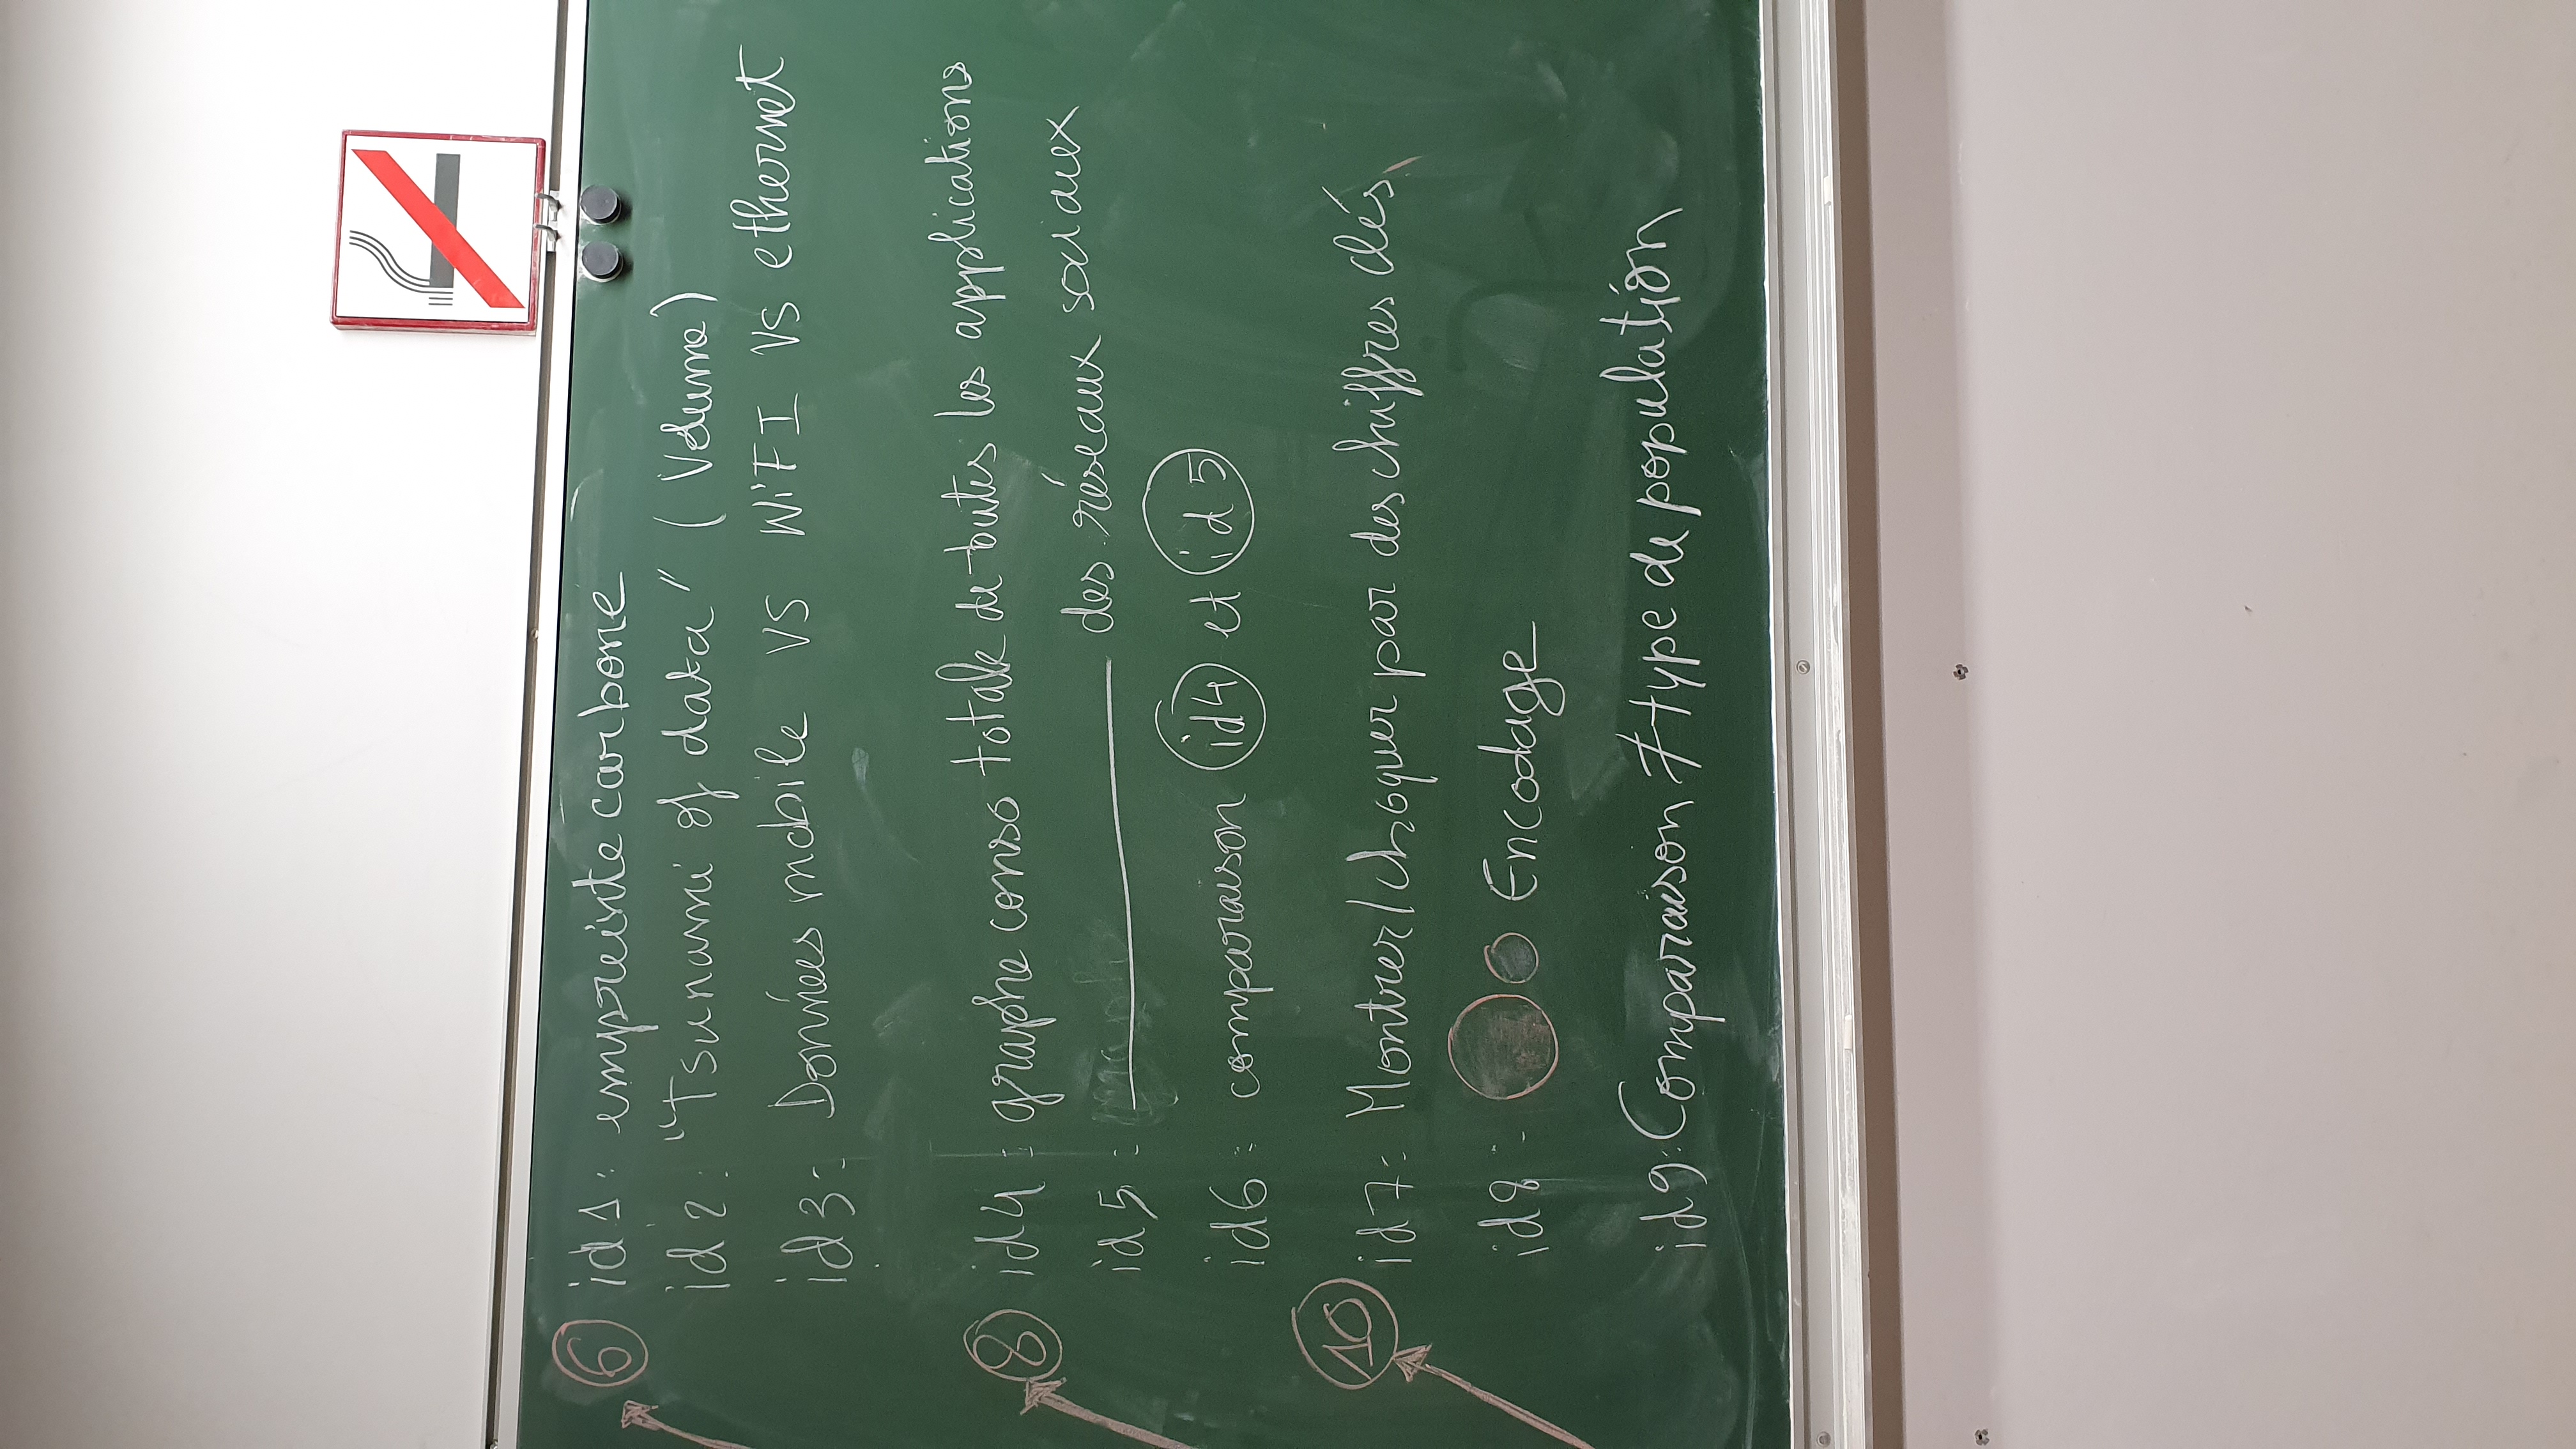 6 id1: empreinte carbone
id2: "Tsunami of data" (Volume)
id3: Données mobile VS WiFI VS ethernet
8 id4: graphe conso totale de toutes les applications
id5: des réseaux sociaux
id6: comparaison id4 et id5
10 id7: Montrer/choquer par des chiffres clés
id8: Encodage
id9: Comparaison ≠ type de population